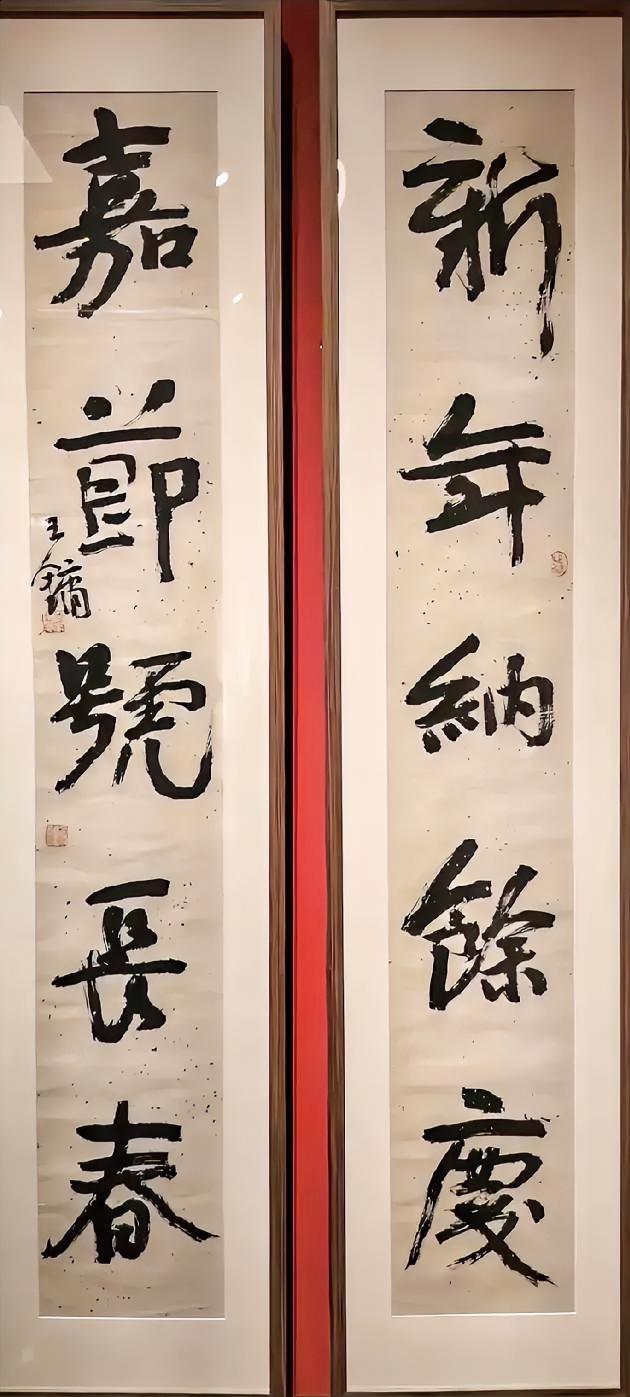 新年納餘慶
嘉節號長春
王鏞